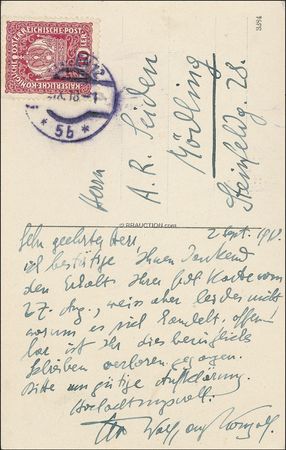 KAISERLICHE KÖNIGLICHE ÖSTERREICHISCHE POST
10
18 - 1
* 5b *
3384
Herrn
A. R. Seiden
Mödling
Steinfeldg. 28.
2 Sept. 1918.
Sehr geehrter Herr.
ich bestätige Ihnen dankend
den Erhalt Ihrer Karte vom
27. Aug., weiss aber leider nicht
worum es sich handelt. offen-
bar ist Ihr diesbezügliches
Schreiben verloren gegangen.
Bitte um gütige Aufklärung.
Hochachtungsvoll.
Korngold
© RRAUCTION.COM